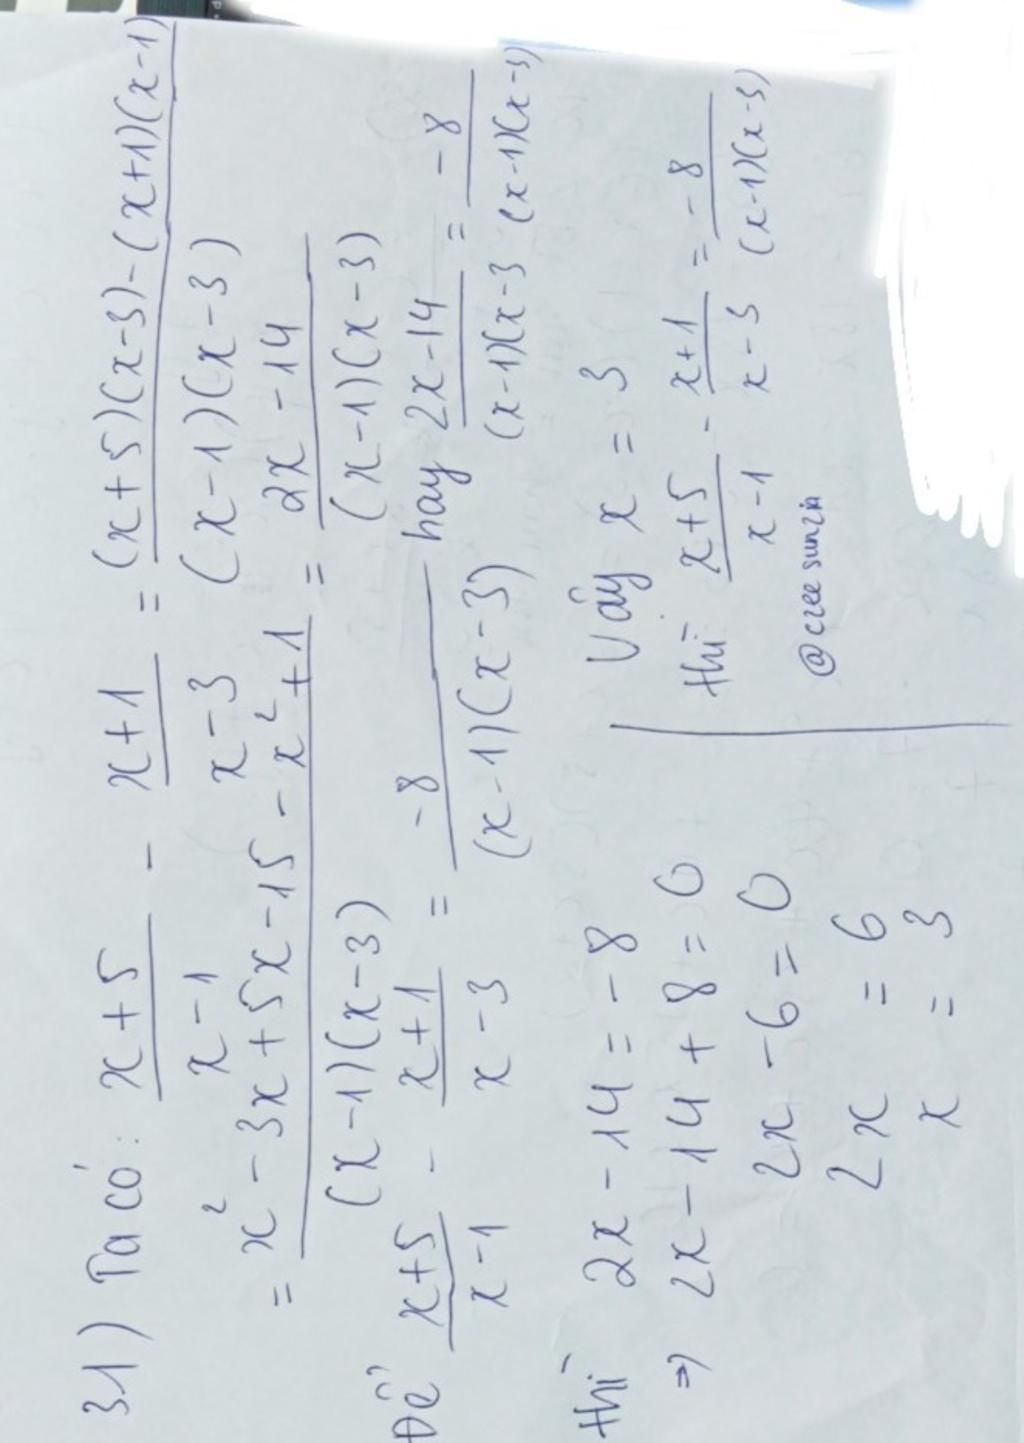 3.1) Ta có: x+5/x-1 - x+1/x-3 = (x+5)(x-3)-(x+1)(x-1)/(x-1)(x-3)
= x²-3x+5x-15-x²+1/(x-1)(x-3) = 2x-14/(x-1)(x-3)
Để x+5/x-1 - x+1/x-3 = -8/(x-1)(x-3) hay 2x-14/(x-1)(x-3 = -8/(x-1)(x-3)
thì 2x-14=-8
⇒ 2x-14+8=0
2x-6=0
2x = 6
x = 3
Vậy x = 3
thì x+5/x-1 - x+1/x-3 = -8/(x-1)(x-3)